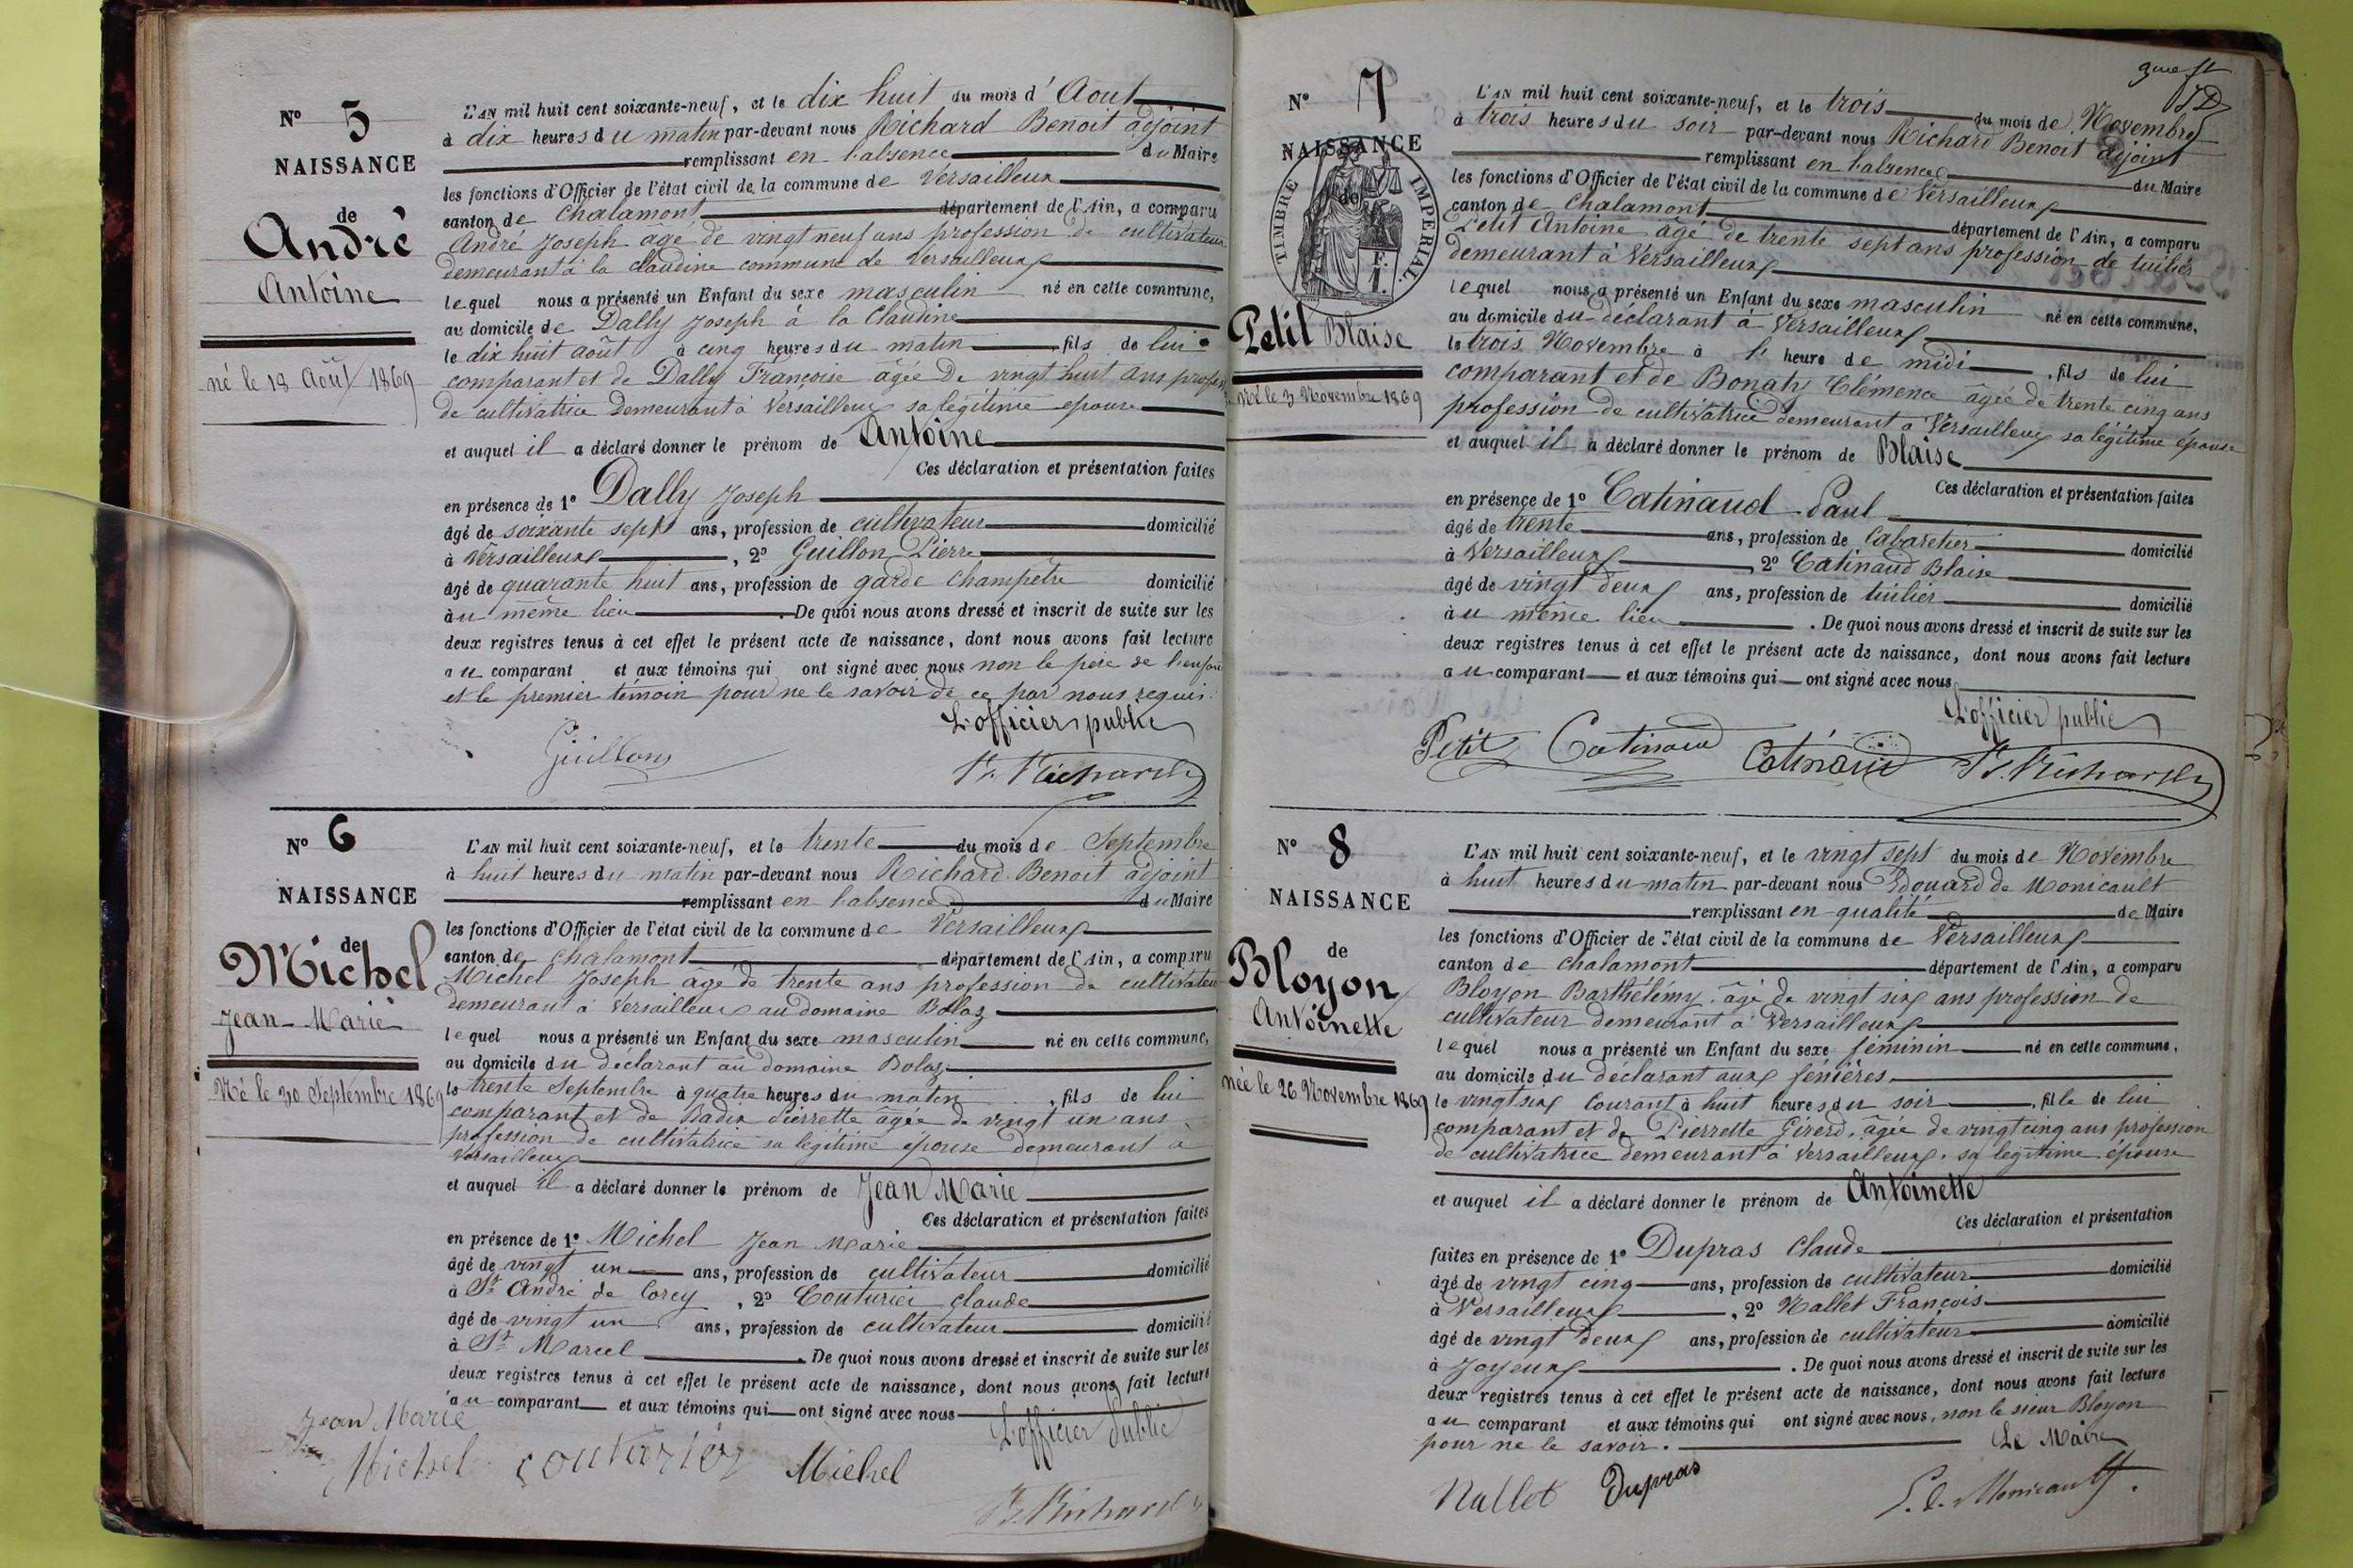 N° 5
NAISSANCE
de
André
Antoine
né le 18 Août 1869
L'AN mil huit cent soixante-neuf, et le dix huit du mois d' Aout
à dix heures du matin par-devant nous Richard Benoit adjoint
remplissant en l'absence du Maire
les fonctions d'Officier de l'état civil de la commune de Versailleux
canton de Chalamont département de l'Ain, a comparu
André Joseph âgé de vingt neuf ans profession de cultivateur
demeurant à la Claudine commune de Versailleux
lequel nous a présenté un Enfant du sexe masculin né en cette commune,
au domicile de Dally Joseph à la Claudine
le dix huit août à cinq heures du matin, fils de lui
comparant et de Dally Françoise âgée de vingt huit ans profession
de cultivatrice demeurant à Versailleux sa légitime epouse
et auquel il a déclaré donner le prénom de Antoine
Ces déclaration et présentation faites
en présence de 1° Dally Joseph
âgé de soixante sept ans, profession de cultivateur domicilié
à Versailleux, 2° Guillon Pierre
âgé de quarante huit ans, profession de garde champêtre domicilié
au même lieu. De quoi nous avons dressé et inscrit de suite sur les
deux registres tenus à cet effet le présent acte de naissance, dont nous avons fait lecture
au comparant et aux témoins qui ont signé avec nous non le père de l'enfant
et le premier témoin pour ne le savoir de ce par nous requis.
L'officier public
Guillon
B. Richard
N° 6
NAISSANCE
de
Michel
Jean-Marie
Né le 30 Septembre 1869
L'AN mil huit cent soixante-neuf, et le trente du mois de Septembre
à huit heures du matin par-devant nous Richard Benoit adjoint
remplissant en l'absence du Maire
les fonctions d'Officier de l'état civil de la commune de Versailleux
canton de Chalamont département de l'Ain, a comparu
Michel Joseph âgé de trente ans profession de cultivateur
demeurant à Versailleux au domaine Bolaz
lequel nous a présenté un Enfant du sexe masculin né en cette commune,
au domicile du déclarant au domaine Bolaz
le trente Septembre à quatre heures du matin, fils de lui
comparant et de Badin Pierrette âgée de vingt un ans
profession de cultivatrice sa légitime epouse demeurant à
Versailleux
et auquel il a déclaré donner le prénom de Jean Marie
Ces déclaration et présentation faites
en présence de 1° Michel Jean Marie
âgé de vingt un ans, profession de cultivateur domicilié
à St André de Corcy, 2° Couturier Claude
âgé de vingt un ans, profession de cultivateur domicilié
à St Marcel. De quoi nous avons dressé et inscrit de suite sur les
deux registres tenus à cet effet le présent acte de naissance, dont nous avons fait lecture
au comparant et aux témoins qui ont signé avec nous
L'officier Public
Jean Marie
Michel couturier Michel
B. Richard
N° 7
NAISSANCE
de
TIMBRE IMPÉRIAL
Petit Blaise
Né le 3 Novembre 1869
L'AN mil huit cent soixante-neuf, et le trois du mois de Novembre
à trois heures du soir par-devant nous Richard Benoit adjoint
remplissant en l'absence du Maire
les fonctions d'Officier de l'état civil de la commune de Versailleux
canton de Chalamont département de l'Ain, a comparu
Petit Antoine âgé de trente sept ans profession de tuilier
demeurant à Versailleux
lequel nous a présenté un Enfant du sexe masculin né en cette commune,
au domicile du déclarant à Versailleux
le trois Novembre à l' heure de midi, fils de lui
comparant et de Bonatz Clémence âgée de trente cinq ans
profession de cultivatrice demeurant a Versailleux sa légitime épouse
et auquel il a déclaré donner le prénom de Blaise
Ces déclaration et présentation faites
en présence de 1° Catinaud Paul
âgé de trente ans, profession de Cabaretier domicilié
à Versailleux, 2° Catinaud Blaise
âgé de vingt deux ans, profession de tuilier domicilié
au même lieu. De quoi nous avons dressé et inscrit de suite sur les
deux registres tenus à cet effet le présent acte de naissance, dont nous avons fait lecture
au comparant et aux témoins qui ont signé avec nous
L'officier public
Petit Catinaud Catinaud B. Richard
N° 8
NAISSANCE
de
Bloyon
Antoinette
née le 26 Novembre 1869
L'AN mil huit cent soixante-neuf, et le vingt sept du mois de Novembre
à huit heures du matin par-devant nous Edouard de Monicault
remplissant en qualité de Maire
les fonctions d'Officier de l'état civil de la commune de Versailleux
canton de Chalamont département de l'Ain, a comparu
Bloyon Barthélémy, âgé de vingt six ans profession de
cultivateur demeurant à Versailleux
lequel nous a présenté un Enfant du sexe féminin né en cette commune,
au domicile du déclarant aux fenières,
le vingt six Courant à huit heures du soir, fille de lui
comparant et de Pierrette Girerd, âgée de vingt cinq ans profession
de cultivatrice demeurant à Versailleux, sa légitime épouse
et auquel il a déclaré donner le prénom de Antoinette
Ces déclaration et présentation
faites en présence de 1° Dupras Claude
âgé de vingt cinq ans, profession de cultivateur domicilié
à Versailleux, 2° Nallet François
âgé de vingt deux ans, profession de cultivateur domicilié
à Joyeux. De quoi nous avons dressé et inscrit de suite sur les
deux registres tenus à cet effet le présent acte de naissance, dont nous avons fait lecture
au comparant et aux témoins qui ont signé avec nous, non le sieur Bloyon
pour ne le savoir.
Le Maire
Nallet Dupras E. de Monicault